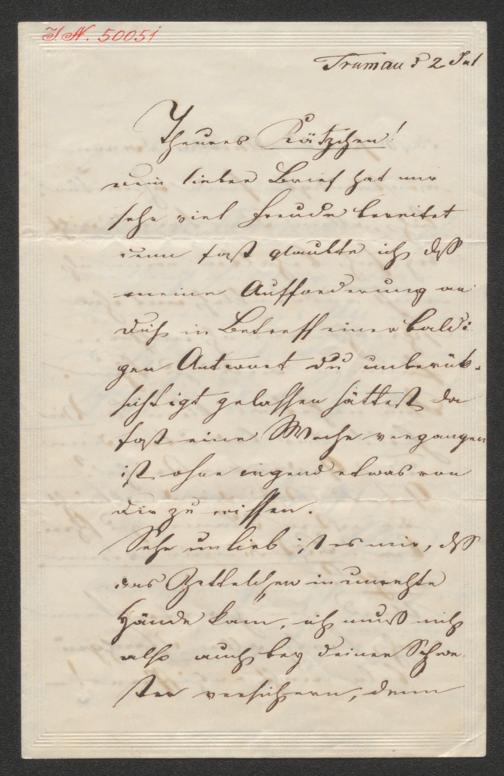 I.N. 50051
Trumau d 2 Jul
Theures Kätzchen!
dein lieber Brief hat mir
sehr viel Freude bereitet
denn fast glaubte ich, daß
meine Aufforderung an
Dich in Betreff einer baldi
gen Antwort du unberük-
sichtigt gelassen hättest, da
fast eine Woche vergangen
ist ohne irgend etwas von
Dir zu wissen.
Sehr unlieb ist es mir, daß
das Zettelchen in unrechte
Hände kam, ich muß mich
also auch bey deiner Schwe
ster versichern, denn